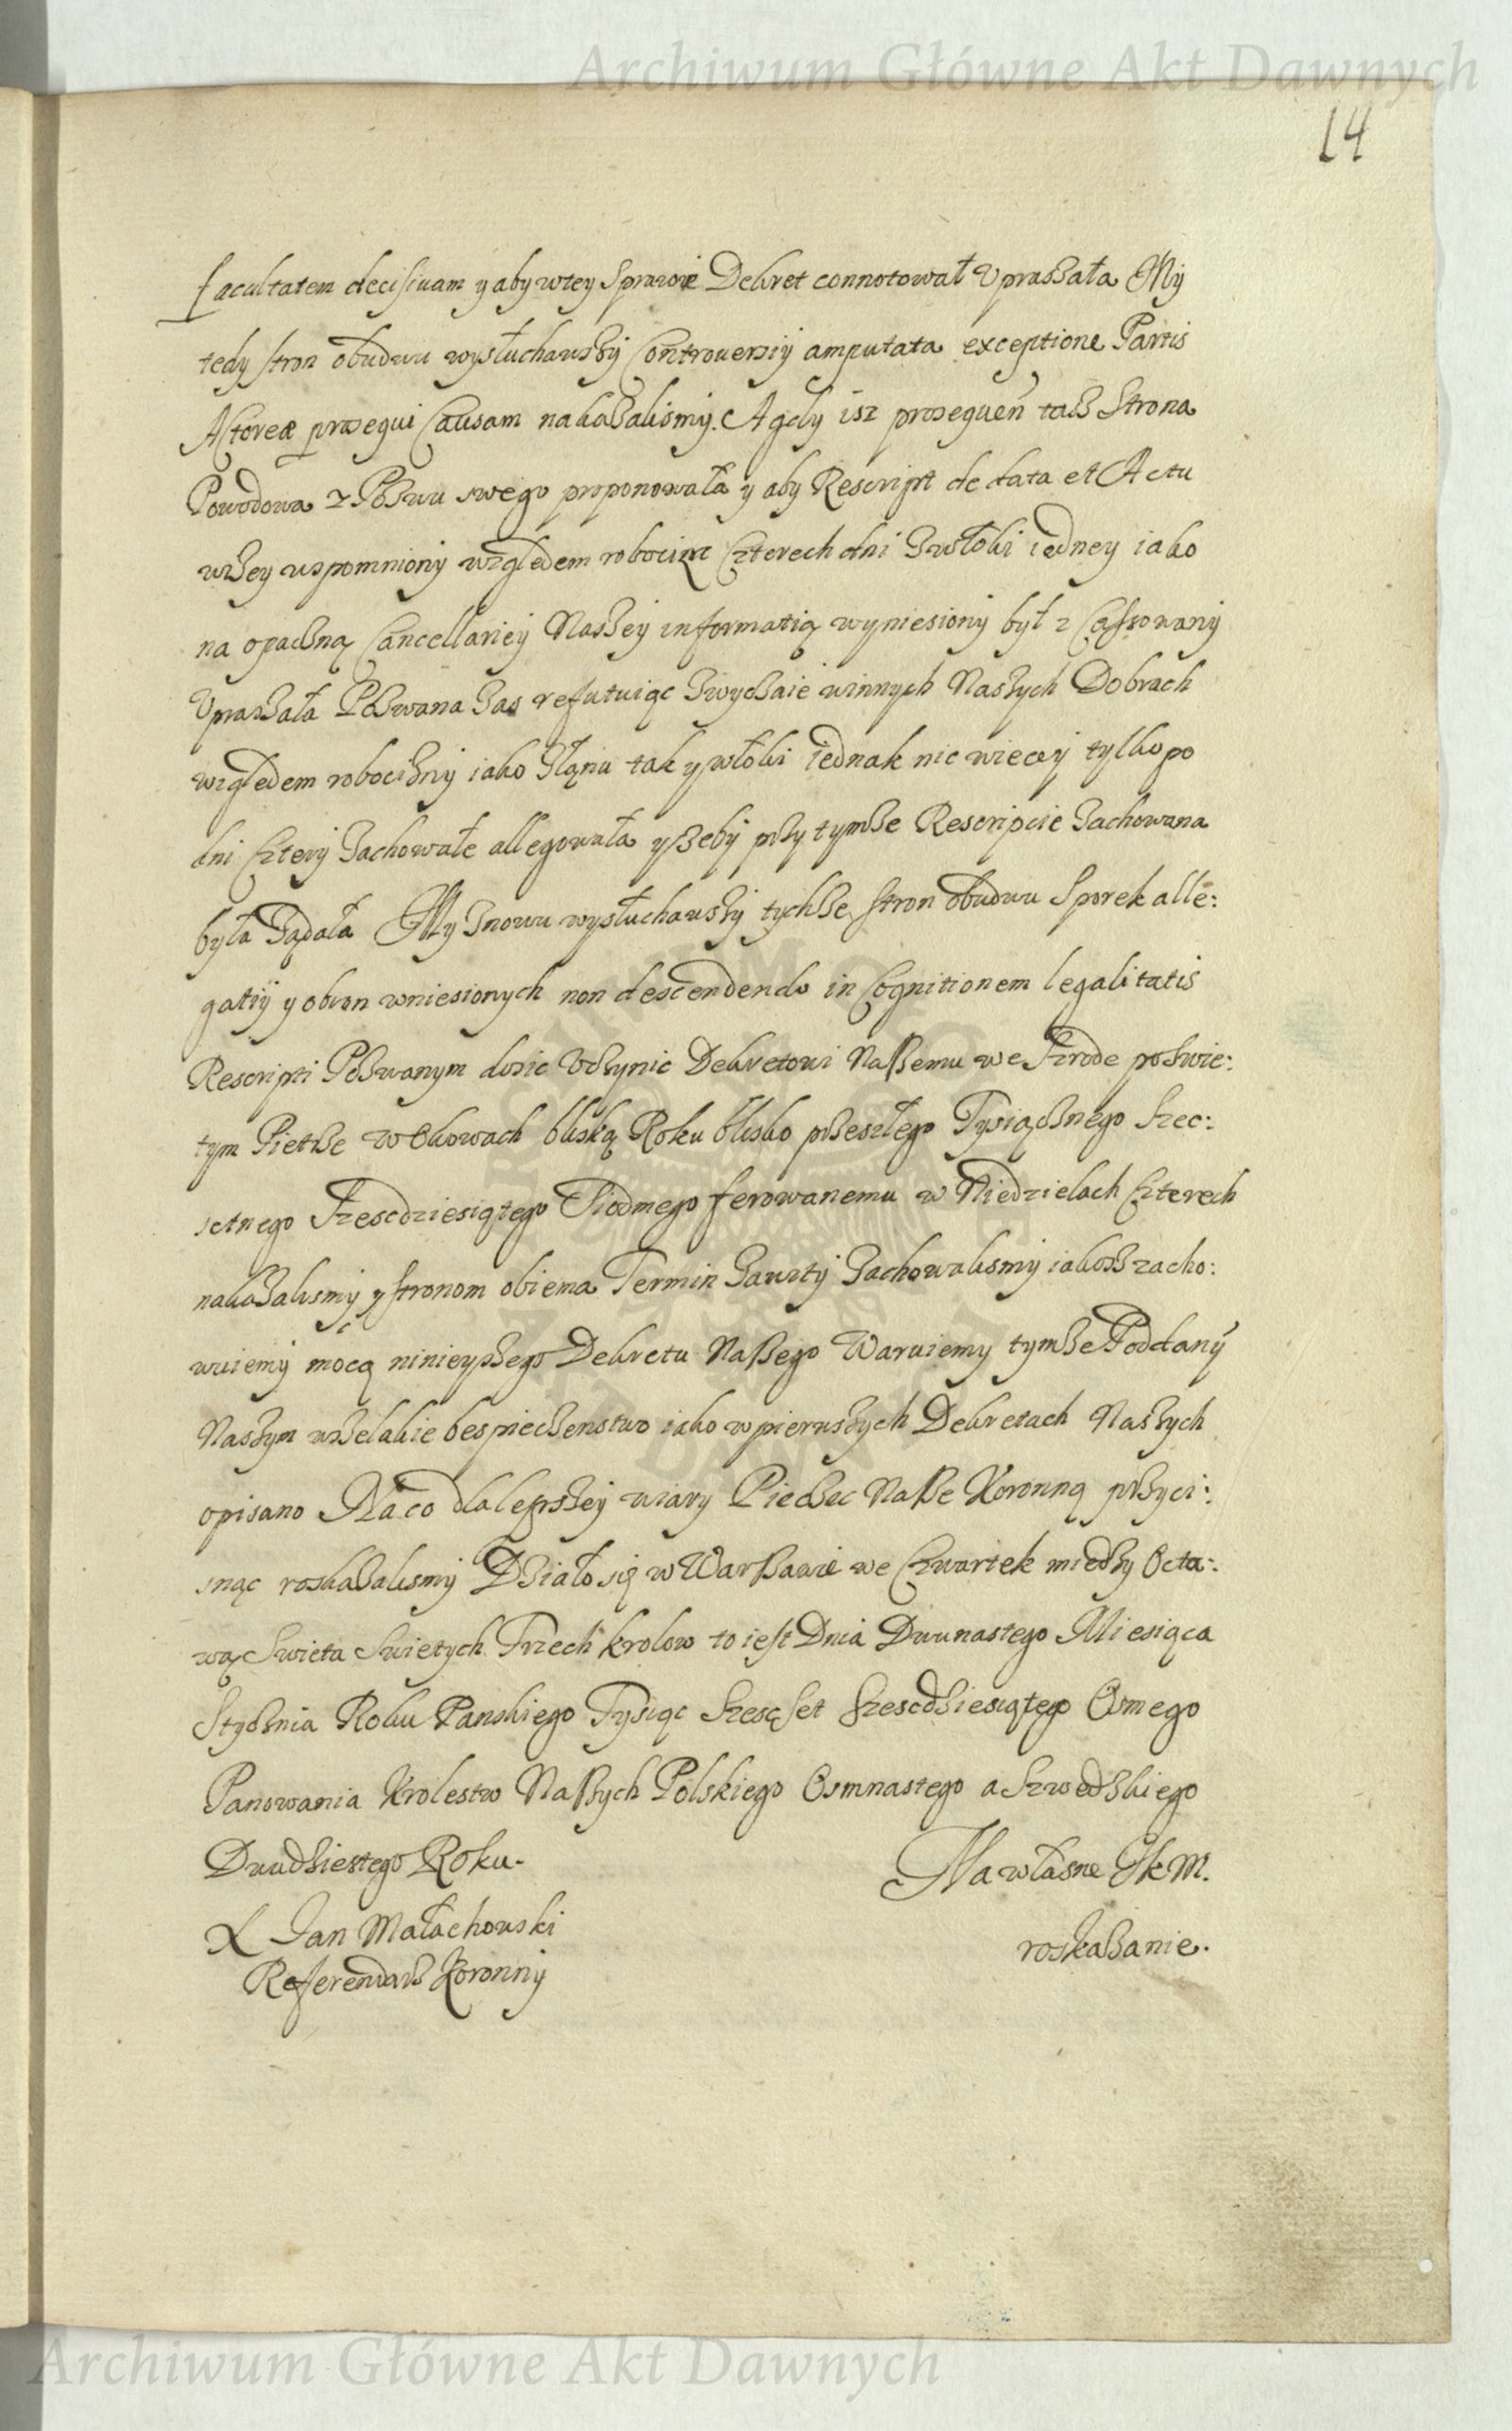 Archiwum Główne Akt Dawnych
14
facultatem decisivam y aby wtey Sprawie Dekret connotował Upraszała My
tedy stron obudwu wysłuchawszy Controversiy amputata exceptione Partis
Actoreæ prosequi Causam nakazaliśmy. A gdy isz prosequen taż Strona
Powodowa z Pozwu swego proponowała y aby Rescript de data et Actu
wzey wspomniony względem robocizn Czterech dni zwłoki iedney iako
na opaczną Cancellariey Naszey informatią wyniesiony był z Cassowany
Upraszała Pozwana zas refutuiąc zwyczaie winnych Naszych Dobrach
względem robocizny iako Złąnu tak y włoki iednak nic więcey tylko po
dni Cztery zachowałe allegowała yżeby przy tymże Rescripcie zachowana
była Żądała My znowu wysłuchawszy tychże stron obudwu Sporek alle:
gatiy y obron wniesionych non descendendo in Cognitionem legalitatis
Rescripti Pozwanym dosic Uczynic Dekretowi Naszemu we Srode po Swie:
tym Pietrze w Okowach bliską Roku blisko przeszłego Tysiącznego Szec:
setnego Szescdziesiątego Siodmego ferowanemu w Niedzielach Czterech
nakazaliśmy y stronom obiema Termin zawity zachowaliśmy iakosz zacho:
wuiemy mocą ninieyszego Dekretu Naszego Waruiemy tymże Poddany
Naszym wszelakie bespieczenstwo iako w pierwszych Dekretach Naszych
opisano Na co dla lepszey wiary Pieczec Nasze Koronną przyci:
snąc roskazaliśmy Działo się w Warszawie we Czwartek miedzy Octa:
wą Swieta Swietych Trzech krolow to iest Dnia Dwunastego Miesiąca
Stycznia Roku Panskiego Tysiąc Szescset Szescdziesiątego Osmego
Panowania Krolestw Naszych Polskiego Osmnastego a Szwedzkiego
Dwudziestego Roku.
Na własne JkM.
roskazanie.
X Jan Małachowski
Referendarz Koronny
Archiwum Główne Akt Dawnych